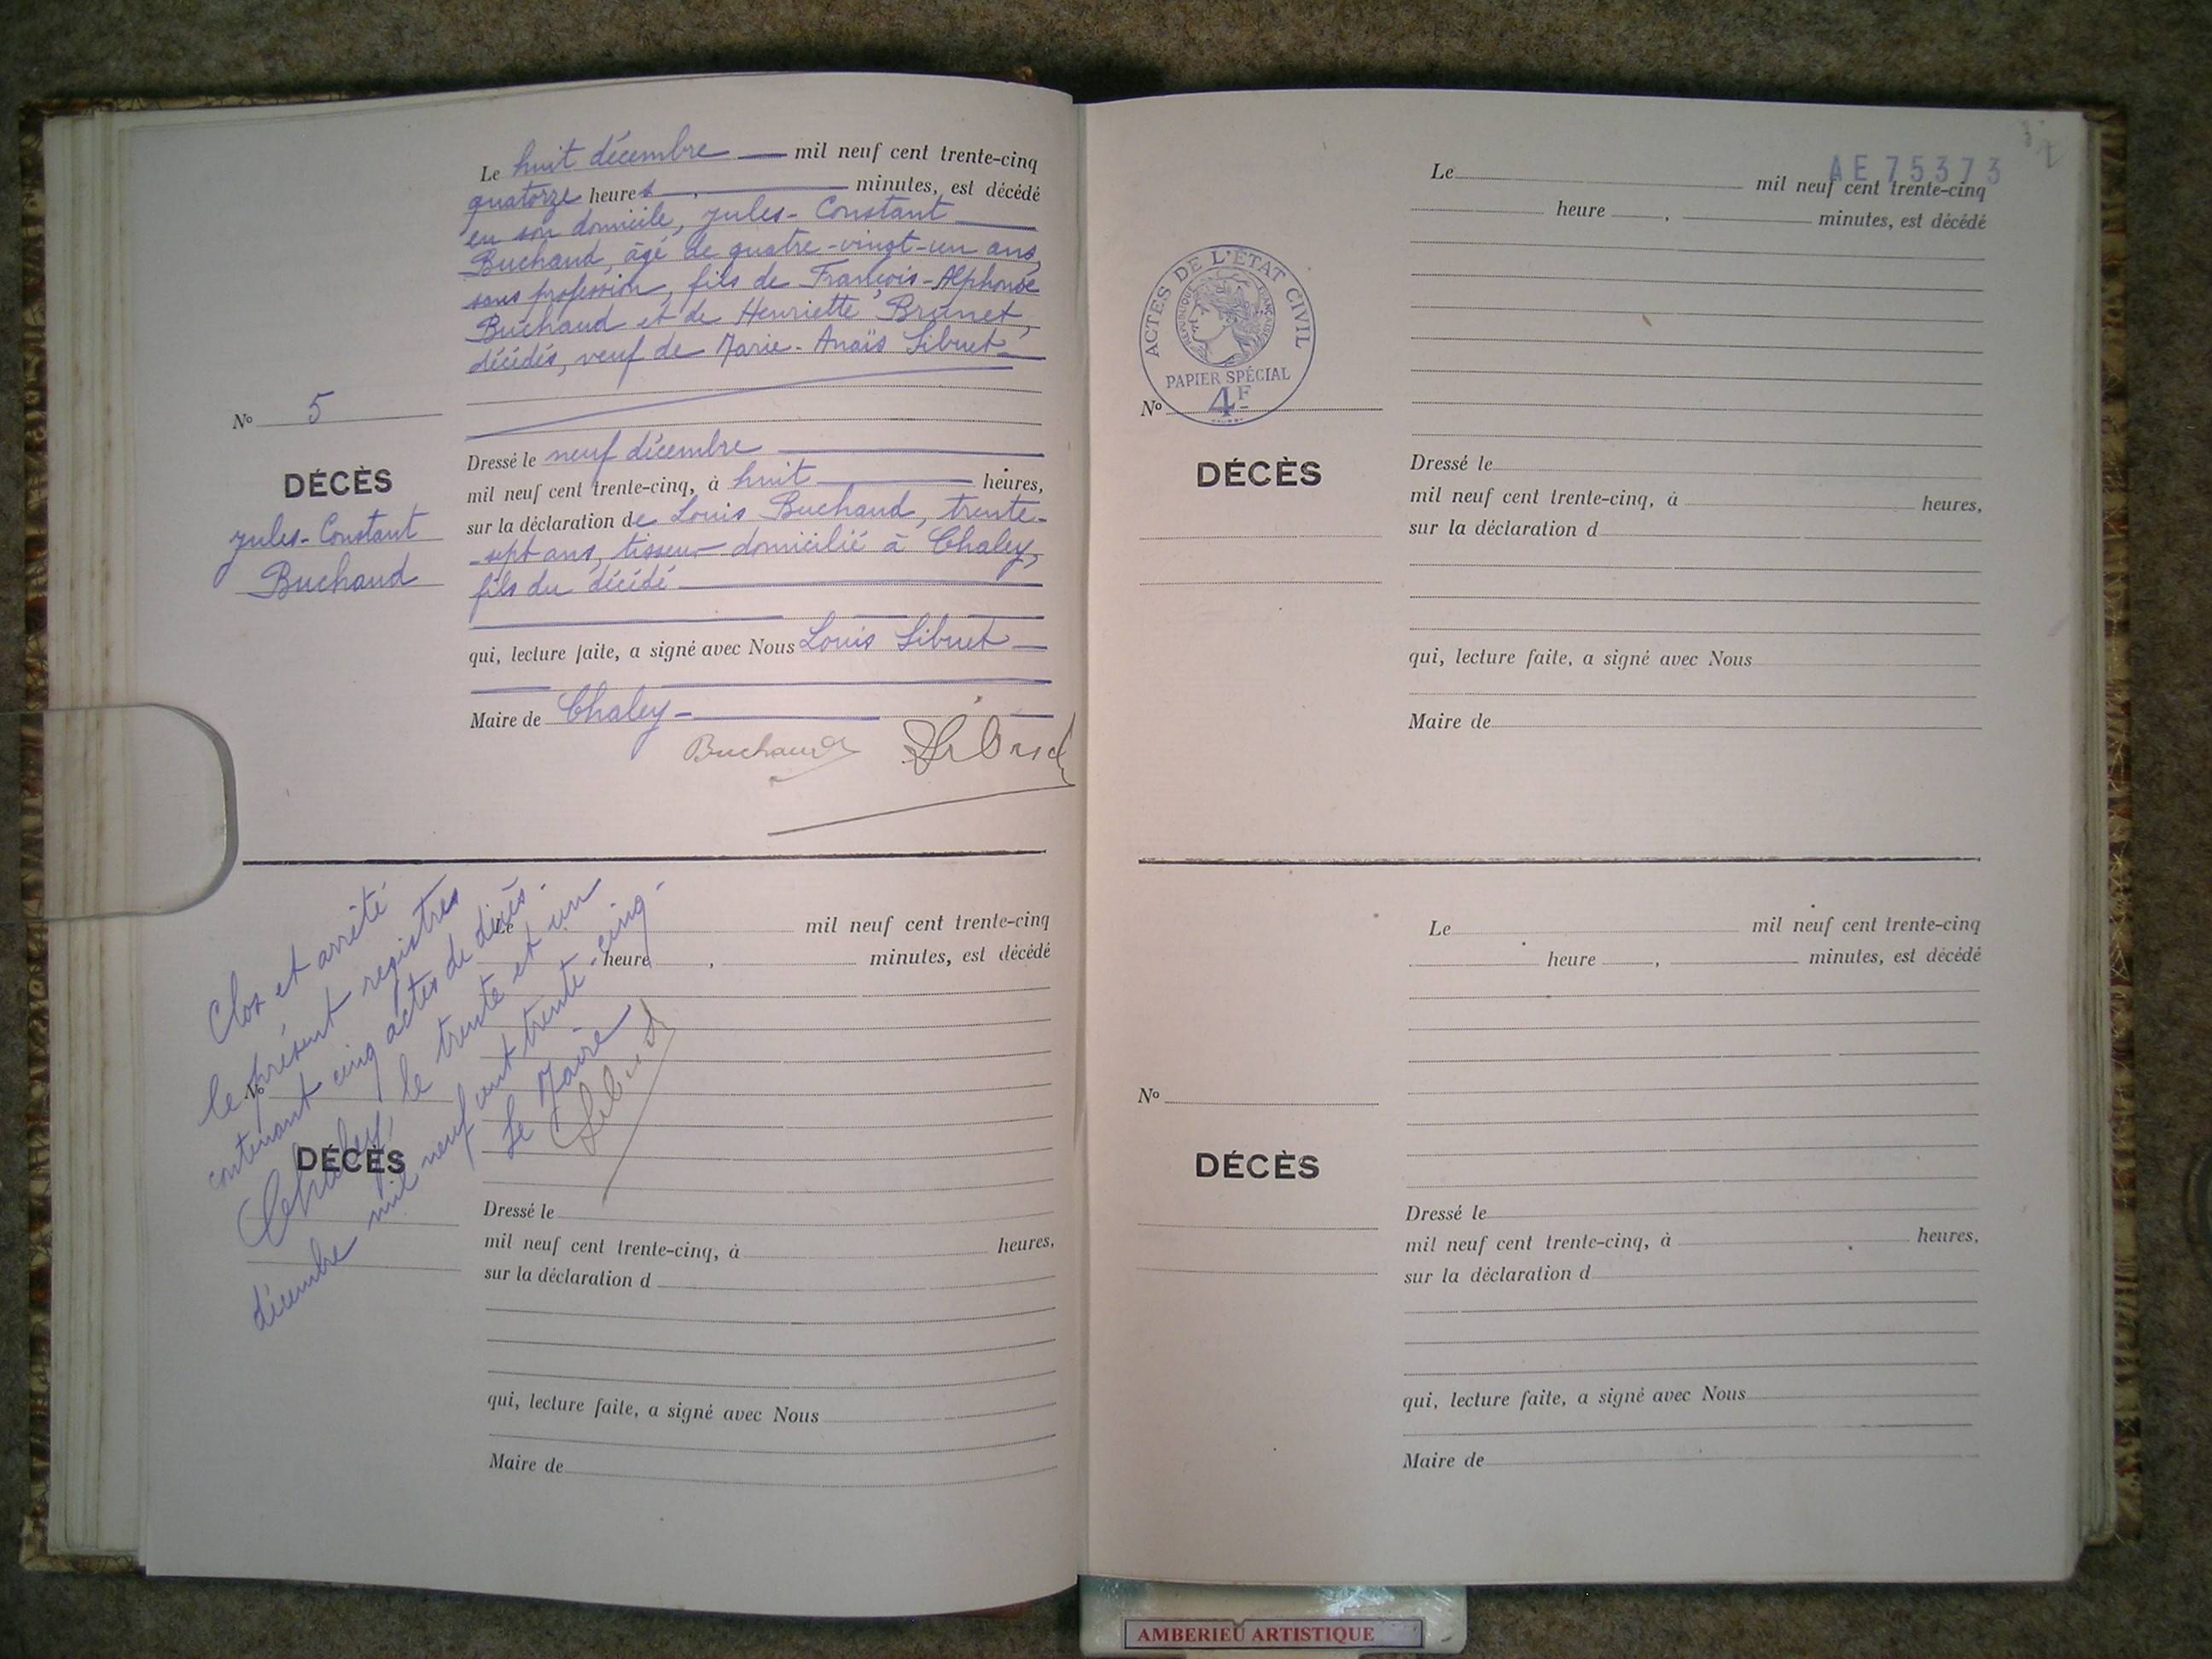 Le huit décembre mil neuf cent trente-cinq
quatorze heures , minutes, est décédé
en son domicile, Jules-Constant
Buchaud, âgé de quatre-vingt-un ans,
sans profession, fils de François-Alphonse
Buchaud et de Henriette Brunet,
décédés, veuf de Marie-Anaïs Sibuet
Nº 5
DÉCÈS
Jules-Constant
Buchaud
Dressé le neuf décembre
mil neuf cent trente-cinq, à huit heures,
sur la déclaration de Louis Buchaud, trente-
sept ans, tisseur domicilié à Chaley,
fils du décédé
qui, lecture faite, a signé avec Nous Louis Sibuet
Maire de Chaley
Buchaud
Clos et arrêté
le présent registres
contenant cinq actes de décès.
Chaley, le trente et un
décembre mil neuf cent trente-cinq.
Le Maire
Le mil neuf cent trente-cinq
heure , minutes, est décédé
Nº
DÉCÈS
Dressé le
mil neuf cent trente-cinq, à heures,
sur la déclaration d
qui, lecture faite, a signé avec Nous
Maire de
AE 75373
Le mil neuf cent trente-cinq
heure , minutes, est décédé
ACTES DE L'ÉTAT CIVIL
RÉPUBLIQUE FRANÇAISE
PAPIER SPÉCIAL
4F
Nº
DÉCÈS
Dressé le
mil neuf cent trente-cinq, à heures,
sur la déclaration d
qui, lecture faite, a signé avec Nous
Maire de
Le mil neuf cent trente-cinq
heure , minutes, est décédé
Nº
DÉCÈS
Dressé le
mil neuf cent trente-cinq, à heures,
sur la déclaration d
qui, lecture faite, a signé avec Nous
Maire de
AMBERIEU ARTISTIQUE